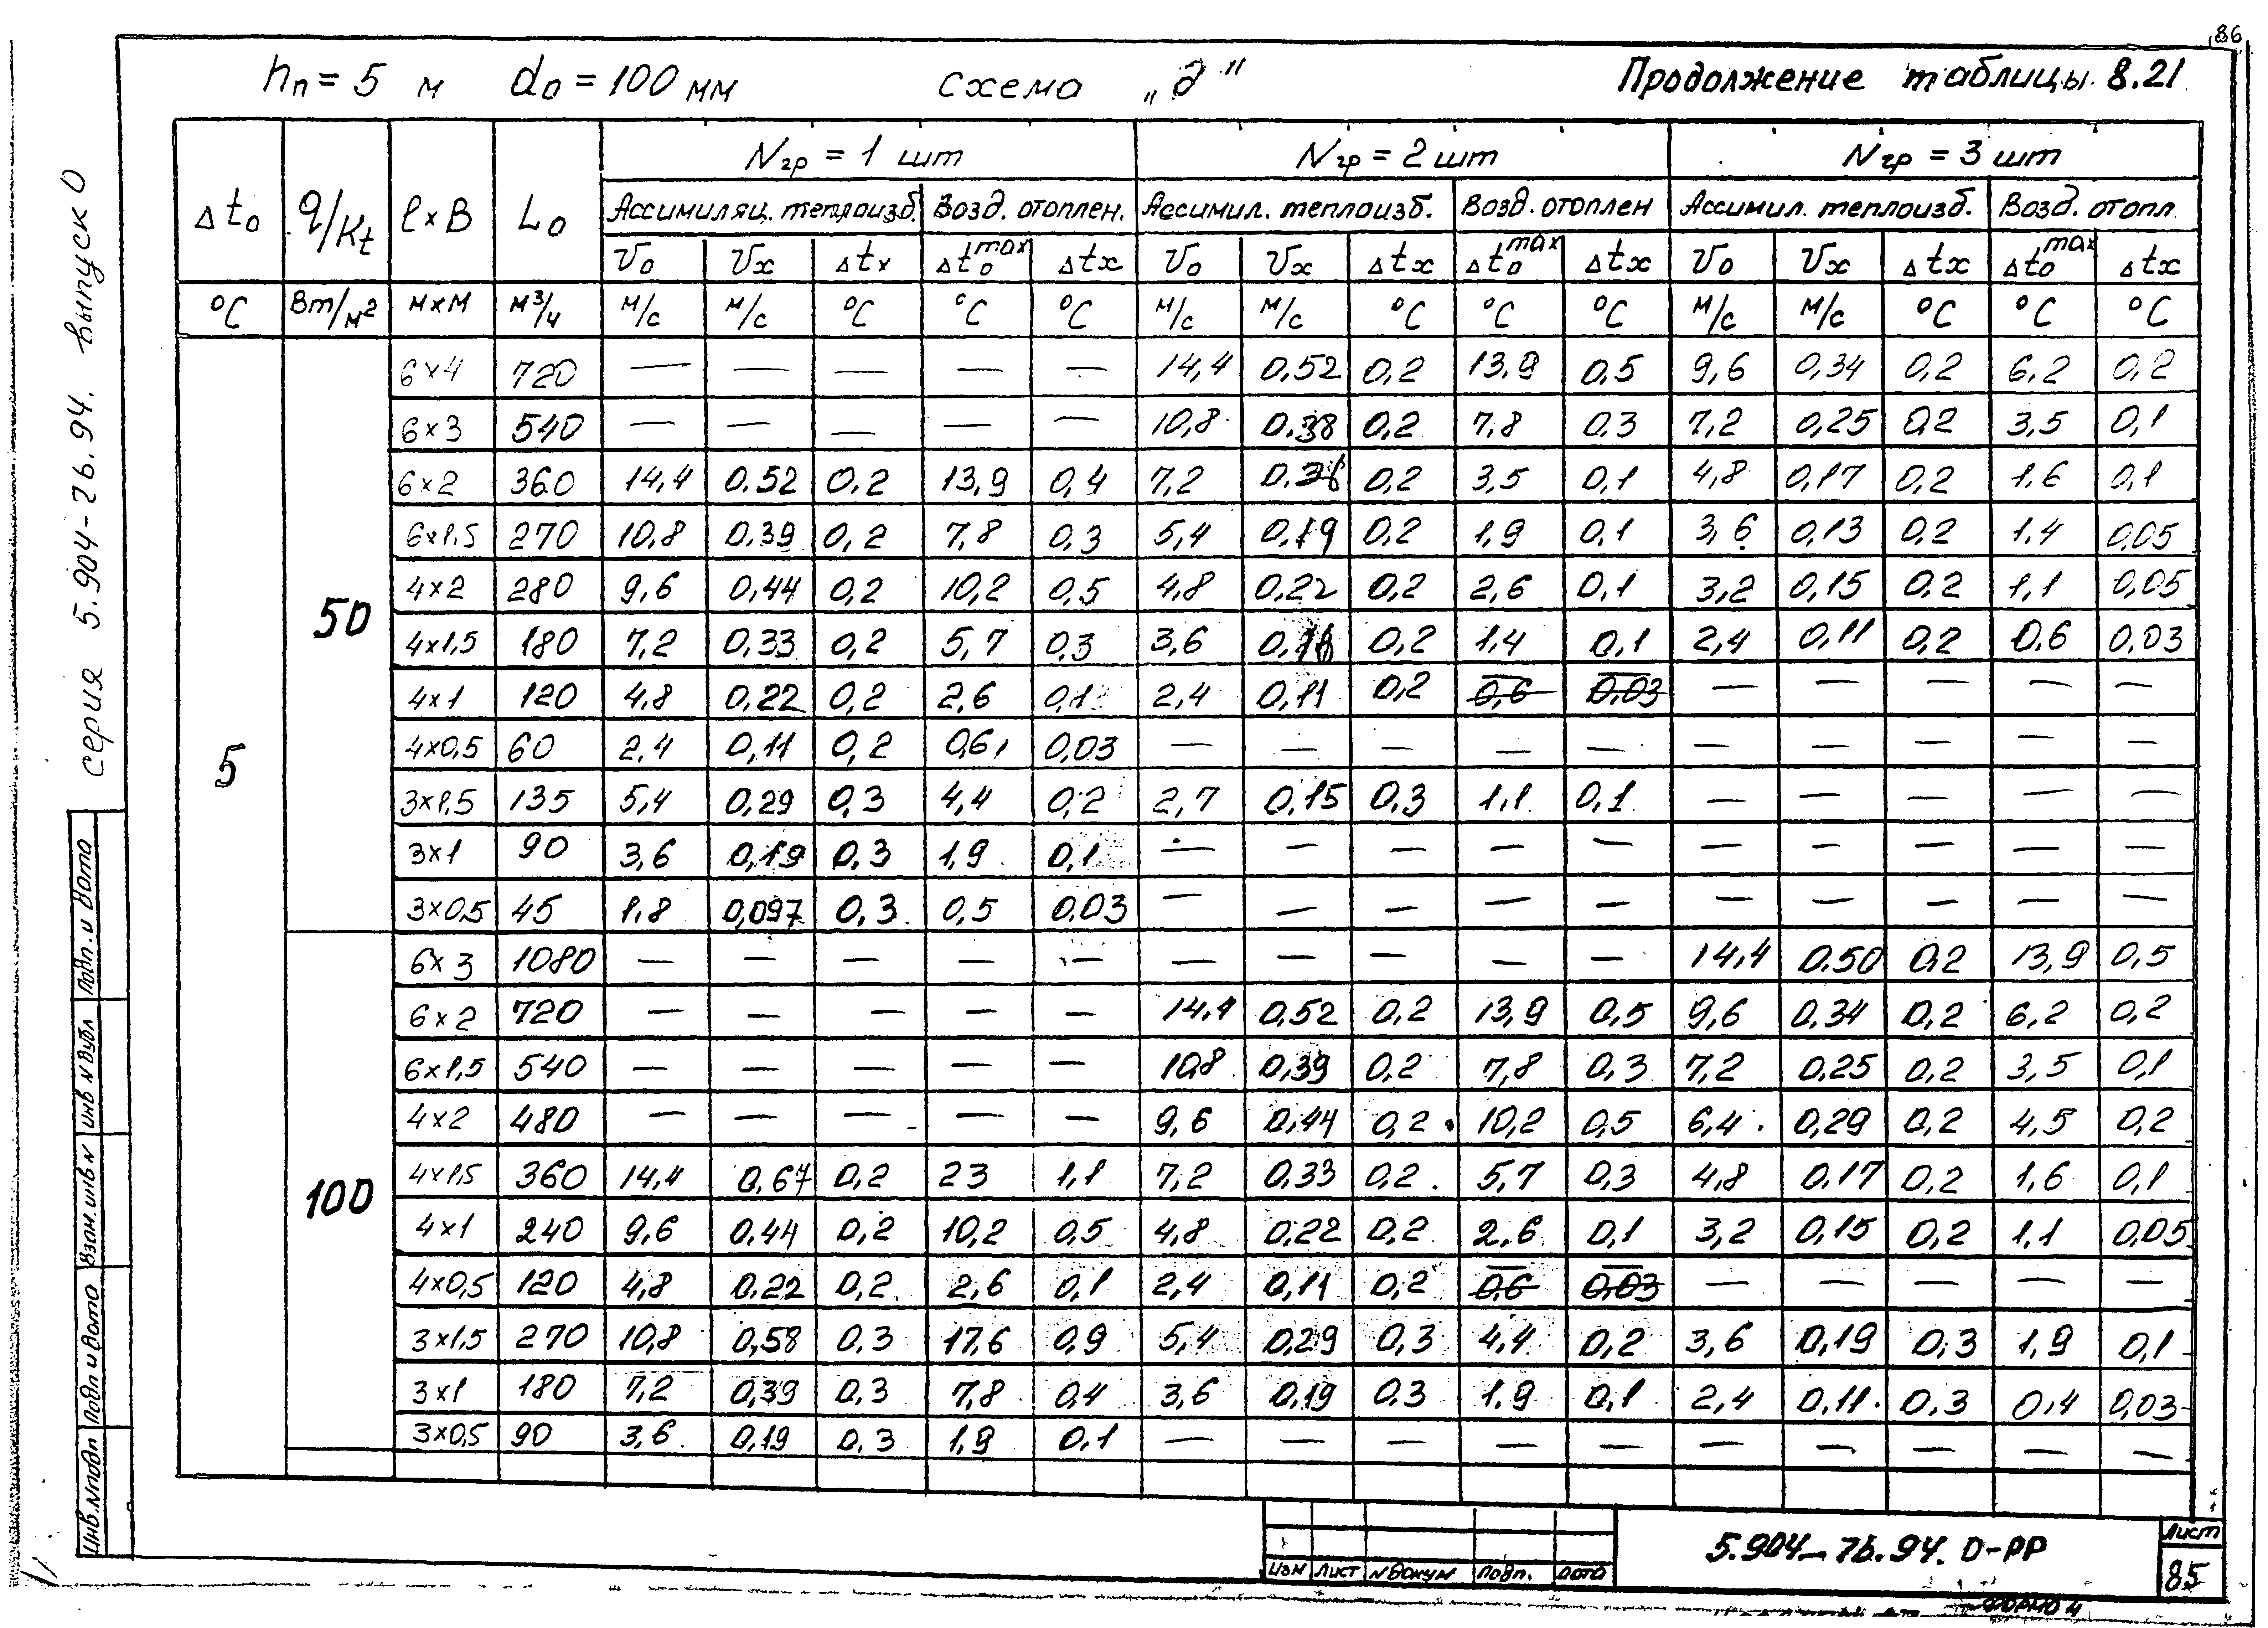 86
hп = 5 м d₀ = 100 мм схема „д" Продолжение таблицы 8.21
серия 5.904-76.94. выпуск 0
Δt₀ q/Kt ℓ×B L₀ Nгр = 1 шт Nгр = 2 шт Nгр = 3 шт
Ассимиляц. теплоизб. Возд. отоплен. Ассимил. теплоизб. Возд. отоплен Ассимил. теплоизб. Возд. отопл.
V₀ Vx Δtx Δt₀max Δtx V₀ Vx Δtx Δt₀max Δtx V₀ Vx Δtx Δt₀max Δtx
°C Вт/м² м×м м³/ч м/с м/с °C °C °C м/с м/с °C °C °C м/с м/с °C °C °C
5
50
6×4 720 — — — — — 14,4 0,52 0,2 13,9 0,5 9,6 0,34 0,2 6,2 0,2
6×3 540 — — — — — 10,8 0,38 0,2 7,8 0.3 7,2 0,25 0,2 3,5 0,1
6×2 360 14,4 0.52 0,2 13,9 0,4 7,2 0,2 3,5 0,1 4,8 0,17 0,2 1,6 0,1
6×1,5 270 10,8 0,39 0,2 7,8 0,3 5,4 0,19 0,2 1,9 0,1 3,6 0,13 0,2 1,4 0,05
4×2 280 9,6 0,44 0,2 10,2 0,5 4,8 0,22 0,2 2,6 0,1 3,2 0,15 0,2 1,1 0,05
4×1,5 180 7,2 0,33 0,2 5,7 0,3 3,6 0,16 0,2 1,4 0,1 2,4 0,11 0,2 0,6 0,03
4×1 120 4,8 0,22 0,2 2,6 0,1 2,4 0,11 0,2 0,6 0,03 — — — — —
4×0,5 60 2,4 0,11 0,2 0,6 0,03 — — — — — — — — — —
3×1,5 135 5,4 0,29 0,3 4,4 0,2 2,7 0,15 0,3 1,1 0,1 — — — — —
3×1 90 3,6 0,19 0,3 1,9 0,1 — — — — — — — — — —
3×0,5 45 1,8 0,097 0,3 0,5 0,03 — — — — — — — — — —
100
6×3 1080 — — — — — — — — — — 14,4 0.50 0,2 13,9 0,5
6×2 720 — — — — — 14,4 0,52 0,2 13,9 0,5 9,6 0,34 0,2 6,2 0,2
6×1,5 540 — — — — — 10,8 0,39 0,2 7,8 0,3 7,2 0,25 0,2 3,5 0,1
4×2 480 — — — — — 9,6 0,44 0,2 10,2 0,5 6,4 0,29 0,2 4,5 0,2
4×1,5 360 14,4 0,67 0,2 23 1,1 7,2 0,33 0,2 5,7 0,3 4,8 0,17 0,2 1,6 0,1
4×1 240 9,6 0,44 0,2 10,2 0,5 4,8 0,22 0,2 2,6 0,1 3,2 0,15 0,2 1,1 0,05
4×0,5 120 4,8 0,22 0,2 2,6 0,1 2,4 0,11 0,2 0,6 0,03 — — — — —
3×1,5 270 10,8 0,58 0,3 17,6 0,9 5,4 0,29 0,3 4,4 0,2 3,6 0,19 0,3 1,9 0,1
3×1 180 7,2 0,39 0,3 7,8 0,4 3,6 0,19 0.3 1,9 0,1 2,4 0,11 0,3 0,4 0,03
3×0,5 90 3,6 0,19 0,3 1,9 0,1 — — — — — — — — — —
Подп. и дата
Инв N дубл
Взам. инв N
Подп и дата
Инв. N подп
Изм Лист N докум Подп. Дата
5.904-76.94. 0-РР
Лист
85
Формат 4